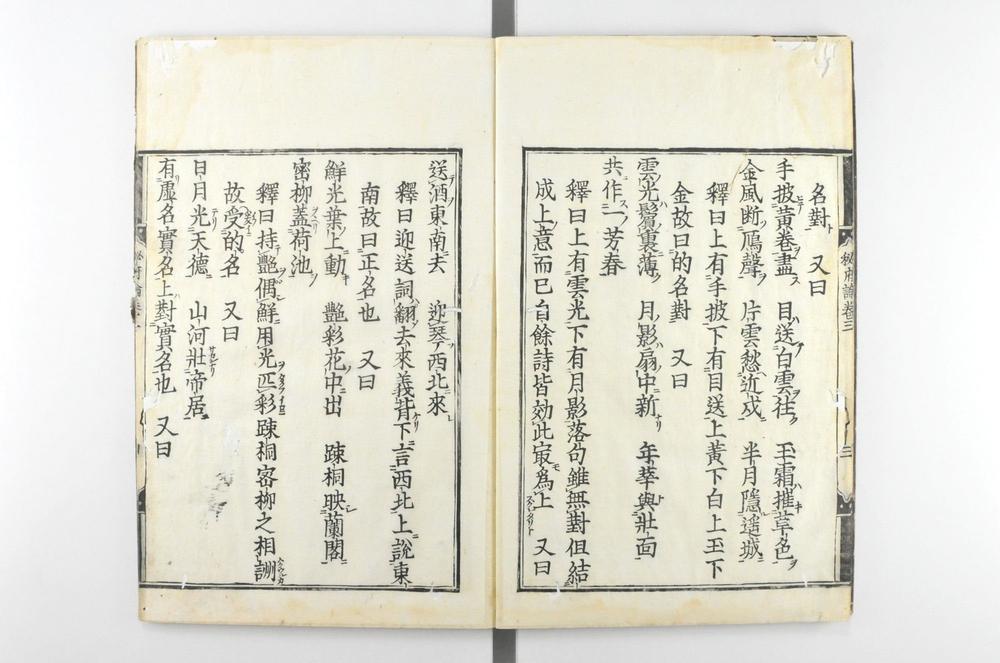 名對　又曰
手披黃卷盡　目送白雲徃　玉霜摧草色
金風断鴈聲　片雲愁近戍　半月隱遥城
釋曰上有手披下有目送上黃下白上玉下
金故曰的名對　又曰
雲光鬢裏薄　月影扇中新　年華與壯面
共作一芳春
釋曰上有雲光下有月影落句雖無對但結
成上意而已自餘詩皆効此冣爲上　又曰
送酒東南去　迎琴西北來
釋曰迎送詞翻去來義背下言西北上說東
南故曰正名也　又曰
鮮光葉上動　艷彩花中出　疎桐映蘭閣
密柳蓋荷池
釋曰持艷偶鮮用光匹彩疎桐密柳之相詶
故受的名　又曰
日月光天德　山河壯帝居
有虛名實名上對實名也　又曰